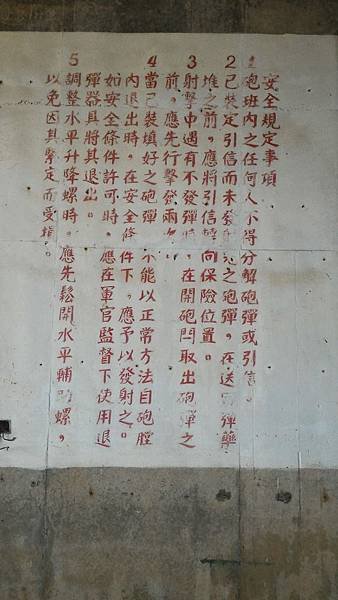 安全規定事項
砲班內之任何人不得分解砲彈或引信。
2已裝定引信而未發射之砲彈,在送回彈藥
堆之前,應將引信轉向保險位置。
3射擊中遇有不發彈時,在開砲閂取出砲彈之
前,應先行擊發兩次
4當已裝填好之砲彈不能以正常方法自砲膛
內退出時,在安全條件下,應予以發射之。
如安全條件許可時,應在軍官監督下使用退
彈器具將其退出。
5調整水平升降螺時。應先鬆開水平輔助螺,
以免因其緊定而受損。